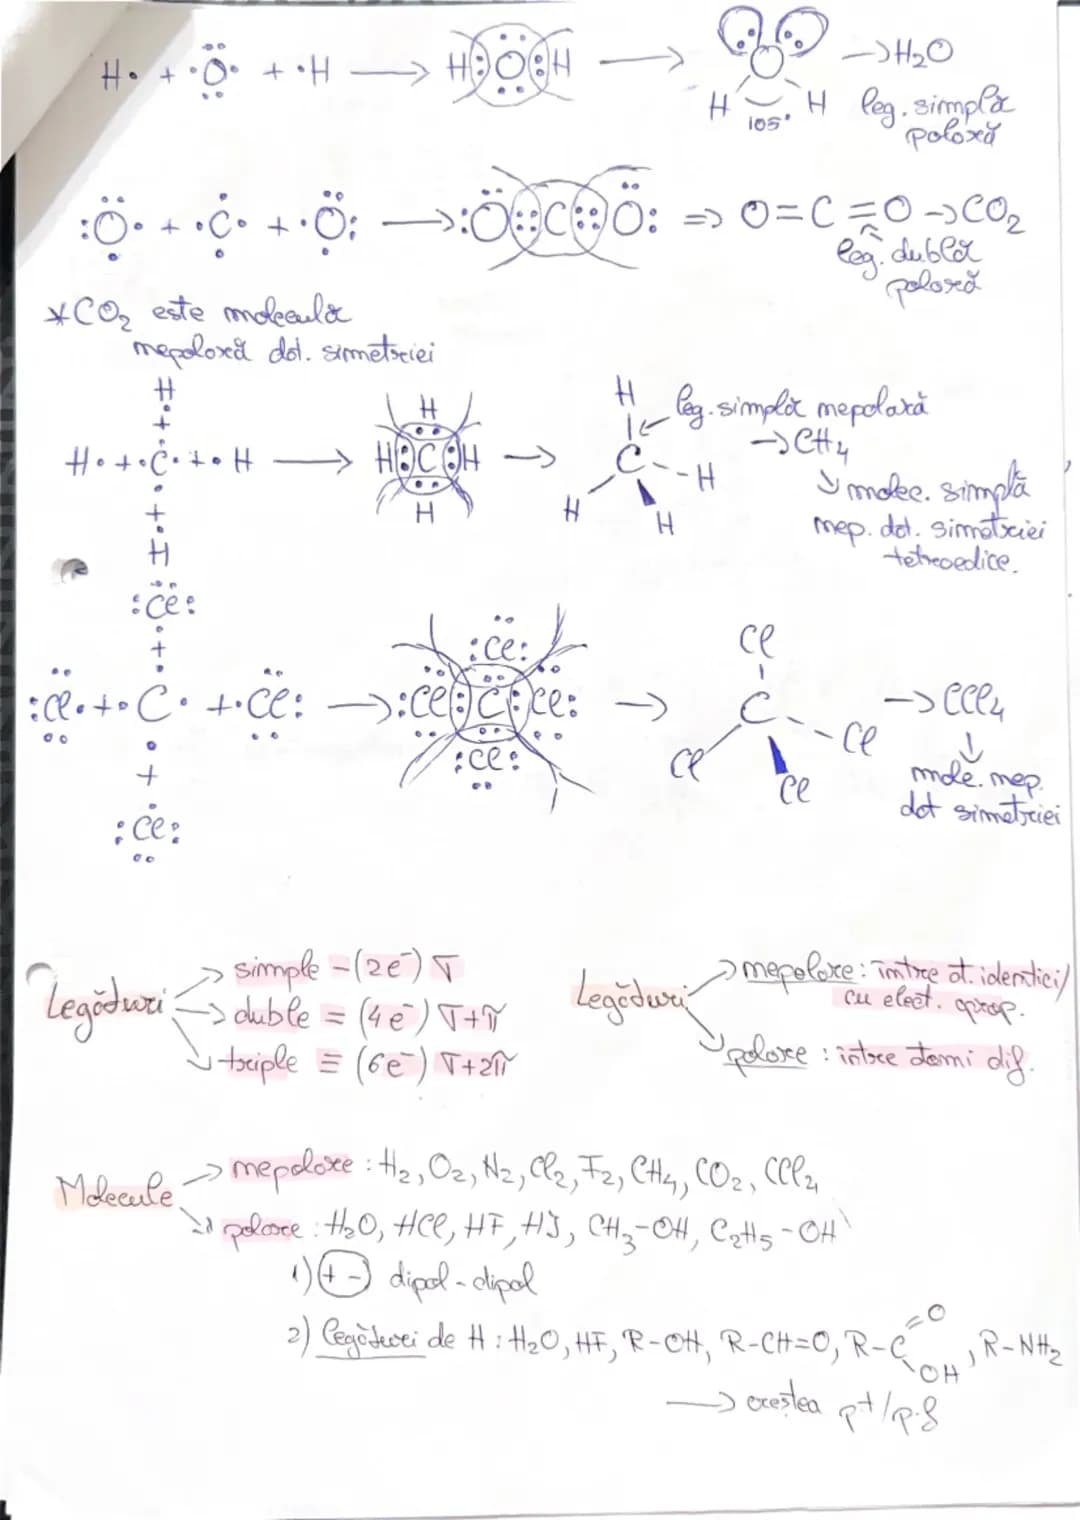 H· + ·Ö· + ·H → H:O:H → H H 105° → H₂O
leg. simplă
polară
:Ö· + ·Ċ· + ·Ö: → :Ö::C::Ö: => O=C=O → CO₂
leg. dublă
polară
*CO₂ este moleculă
nepolară dat. simetriei
H
+
H· + ·C· + ·H → H:C:H → C
+
H
H
H
H
H
H
H
leg. simplă nepolară
→ CH₄
↘ molec. simplă
nep. dat. simetriei
tetraedice.
:Cl:
+
:Cl· + · C · + ·Cl: → :Cl:C:Cl: → C → CCl₄
+
:Cl:
:Cl:
:Cl:
Cl
Cl
Cl
Cl
↓
mole. nep.
dat simetriei
Legături → simple – (2e⁻) σ
→ duble = (4e⁻) σ+π
↘ triple ≡ (6e⁻) σ+2π
Legături → nepolare: între at. identici/
cu elect. aprop.
↘ polare : între atomi dif.
Molecule → nepolare : H₂, O₂, N₂, Cl₂, F₂, CH₄, CO₂, CCl₄
↘ polare : H₂O, HCl, HF, HI, CH₃-OH, C₂H₅-OH
1) (+ -) dipol-dipol
2) legături de H : H₂O, HF, R-OH, R-CH=O, R-C=O OH, R-NH₂
→ creștea pt/p.f